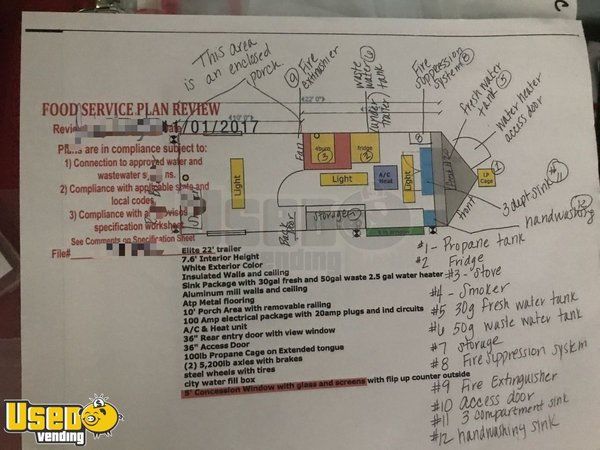 This area
is an enclosed
porch.
⑨ Fire
extinguisher
waste
water ⑥
under
trailer
tank
Fire
suppression
system ⑧
fresh water
tank ⑤
water heater
access door
FOOD SERVICE PLAN REVIEW
11/01/2017
Plans are in compliance subject to:
1) Connection to approved water and
wastewater
2) Compliance with applicable state and
local codes
3) Compliance with
specification worksheet
See Comments on Specification Sheet
File#
422' 0"
Fan
③
fridge
②
8
Light
Light
Light
A/C
Heat
LP
Cage
①
front
3 dept sink
#11
handwashing
12
Storage
Back
door
Elite 22' trailer
7.6' Interior Height
White Exterior Color
Insulated Walls and ceiling
Sink Package with 30gal fresh and 50gal waste 2.5 gal water heater
Aluminum mill walls and ceiling
Atp Metal flooring
10' Porch Area with removable railing
100 Amp electrical package with 20amp plugs and ind circuits
A/C & Heat unit
36" Rear entry door with view window
36" Access Door
100lb Propane Cage on Extended tongue
(2) 5,200lb axles with brakes
steel wheels with tires
city water fill box
5' Concession Window with glass and screens with flip up counter outside
#1 - Propane tank
#2 Fridge
#3 - Stove
#4 - Smoker
#5 30g fresh water tank
#6 50g waste water tank
#7 storage
#8 Fire suppression system
#9 Fire Extinguisher
#10 access door
#11 3 compartment sink
#12 handwashing sink
USED
VENDING